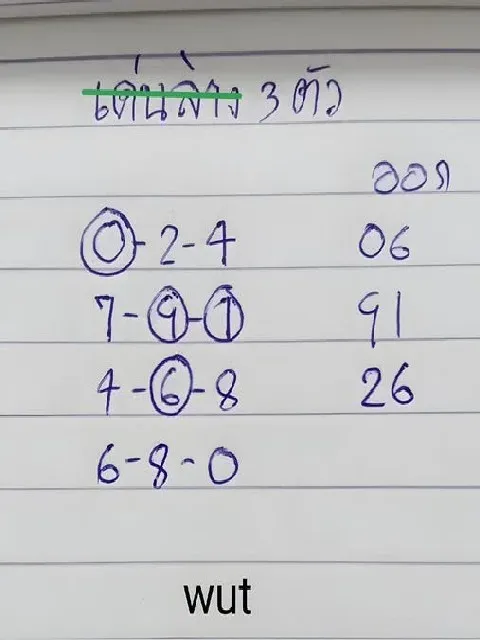 เด่นล่าง 3 ตัว
ออก
0-2-4 06
7-9-1 91
4-6-8 26
6-8-0
wut